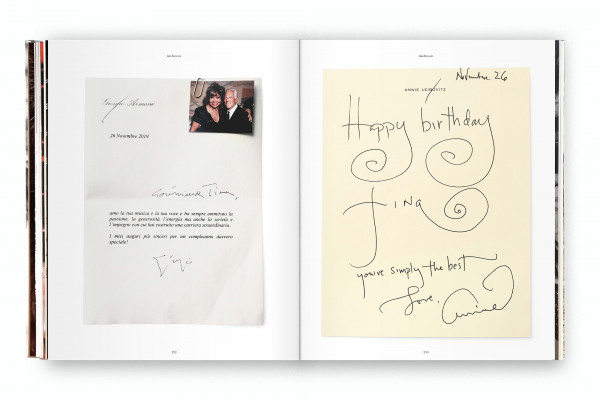 Giorgio Armani
26 Novembre 2019
amo la tua musica e la tua voce e ho sempre ammirato la
passione, la generosità, l'energia ma anche la serietà e
l'impegno con cui hai costruito una carriera straordinaria.
I miei auguri più sinceri per un compleanno davvero
speciale!
November 26
ANNIE LEIBOVITZ
Happy birthday
Tina
you're simply the best
Love,
Annie